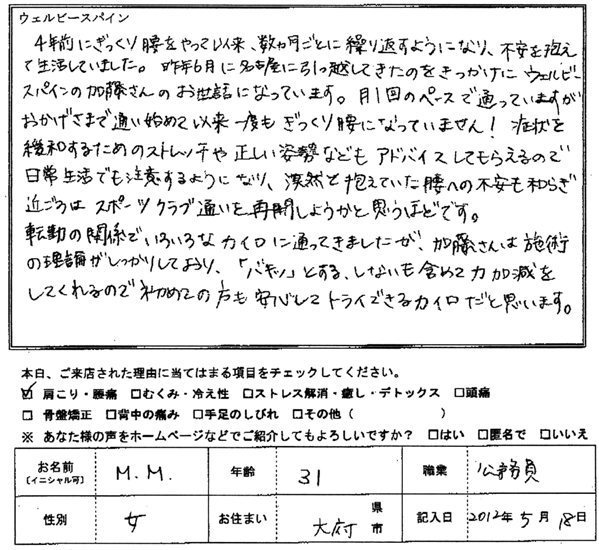 ウェルビースパイン
4年前にぎっくり腰をやって以来、数ヵ月ごとに繰り返すようになり、不安を抱え
て生活していました。昨年6月に名古屋に引っ越してきたのをきっかけにウェルビー
スパインの加藤さんのお世話になっています。月1回のペースで通っていますが
おかげさまで通い始めて以来一度もぎっくり腰になっていません！症状を
緩和するためのストレッチや正しい姿勢などもアドバイスしてもらえるので
日常生活でも注意するようになり、漠然と抱えていた腰への不安も和らぎ
近ごろはスポーツクラブ通いを再開しようかと思うほどです。
転勤の関係でいろいろなカイロに通ってきましたが、加藤さんは施術
の理論がしっかりしており、「バキッ」とする、しないも含めて力加減を
してくれるので初めての方も安心してトライできるカイロだと思います。
本日、ご来店された理由に当てはまる項目をチェックしてください。
☑ 肩こり・腰痛 □むくみ・冷え性 □ストレス解消・癒し・デトックス □頭痛
□ 骨盤矯正 □背中の痛み □手足のしびれ □その他（ ）
※ あなた様の声をホームページなどでご紹介してもよろしいですか？ □はい □匿名で □いいえ
お名前 [イニシャル可] M.M. 年齢 31 職業 公務員
性別 女 お住まい 大府 県 市 記入日 2012年5月18日